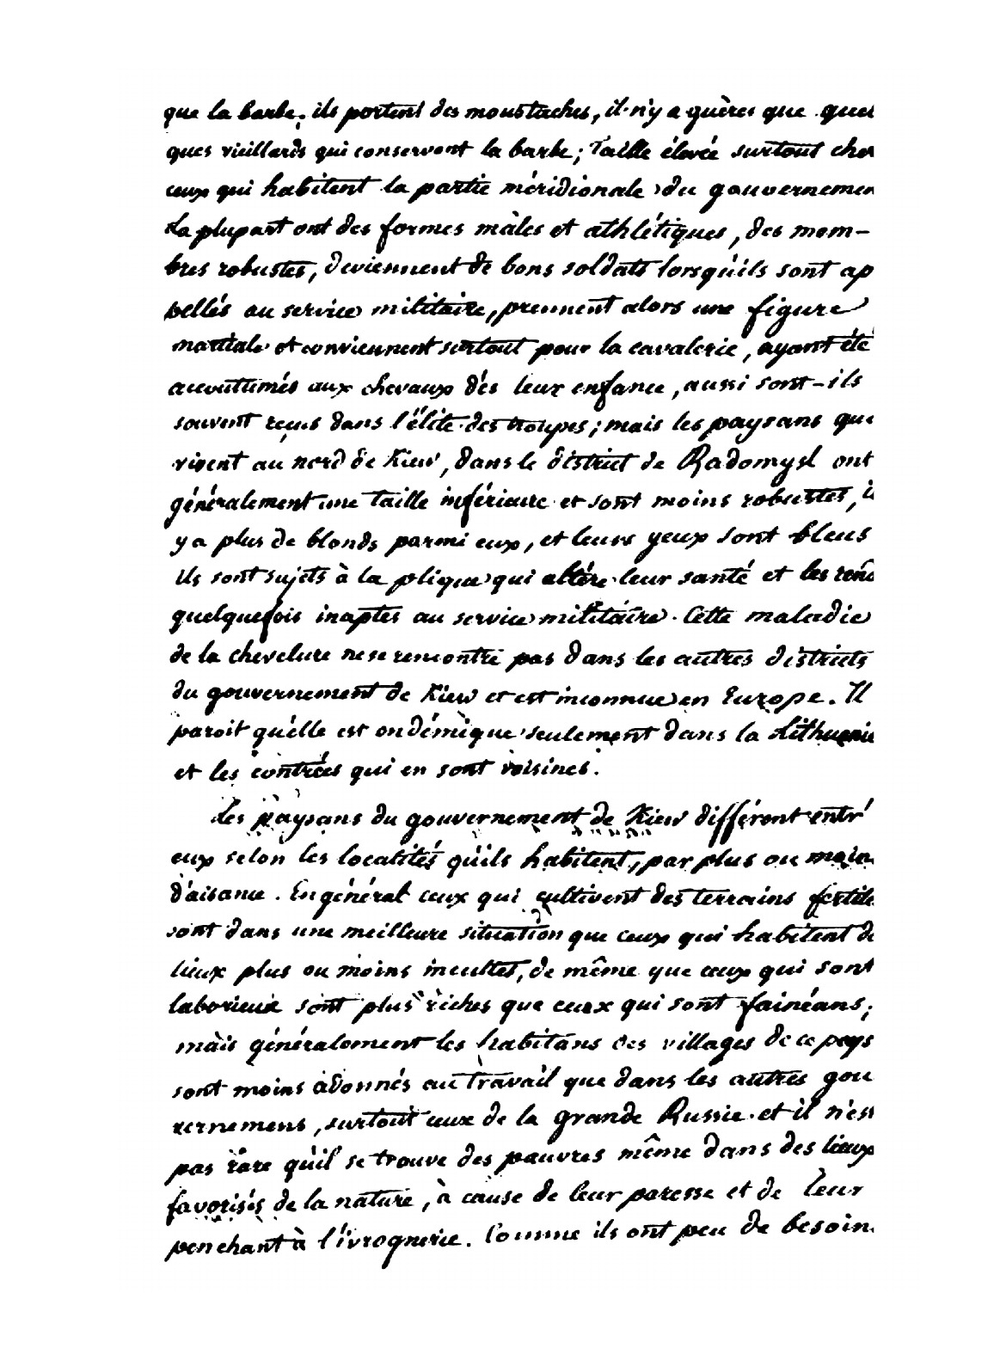 que la barbe, ils portent des moustaches, il n'y a guères que quel
ques vieillards qui conservent la barbe; Taille élevée surtout chez
ceux qui habitent la partie méridionale du gouvernemen
La plupart ont des formes mâles et athlétiques, des mem-
bres robustes, deviennent de bons soldats lorsqu'ils sont ap
pellés au service militaire, prennent alors une figure
martiale et conviennent surtout pour la cavalerie, ayant été
accouttimés aux chevaux dès leur enfance, aussi sont-ils
souvent reçus dans l'élite des troupes; mais les paysans qui
vivent au nord de Kiew, dans le district de Radomysl ont
généralement une taille inférieure et sont moins robustes, i
y a plus de blonds parmi eux, et leurs yeux sont bleus
Ils sont sujets à la plique qui altére leur santé et les rend
quelquefois inaptes au service militaire. Cette maladie
de la chevelure ne se rencontre pas dans les autres districts
du gouvernement de Kiew et est inconnue en Europe. Il
paroit qu'elle est endémique seulement dans la Lithuanie
et les contrées qui en sont voisines.
Les paysans du gouvernement de Kiew différent entr'
eux selon les localités qu'ils habitent, par plus ou moin
d'aisance. En général ceux qui cultivent des terrains fertile
sont dans une meilleure situation que ceux qui habitent de
lieux plus ou moins incultes, de même que ceux qui sont
laborieux sont plus riches que ceux qui sont fainéans;
mais généralement les habitans des villages de ce pays
sont moins adonnés au travail que dans les autres gou
vernemens, surtout ceux de la grande Russie et il n'est
pas rare qu'il se trouve des pauvres même dans des lieux
favorisés de la nature, à cause de leur paresse et de leur
penchant à l'ivrognerie. Comme ils ont peu de besoin